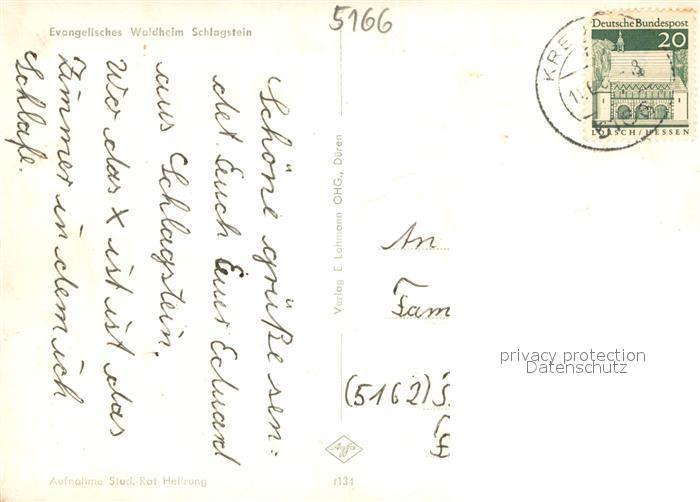 5166
Evangelisches Waldheim Schlagstein
Schöne grüße sen-
det Euch Euer Eduard
aus Schlagstein.
Wo das X ist ist das
Zimmer in dem ich
Schlafe.
Aufnahme Stud.-Rat Hellrung
Verlag E. Lohmann OHG., Düren
Agfa
r134
Deutsche Bundespost
20
LORSCH/HESSEN
KRE
An
Fam
(5162)
privacy protection
Datenschutz